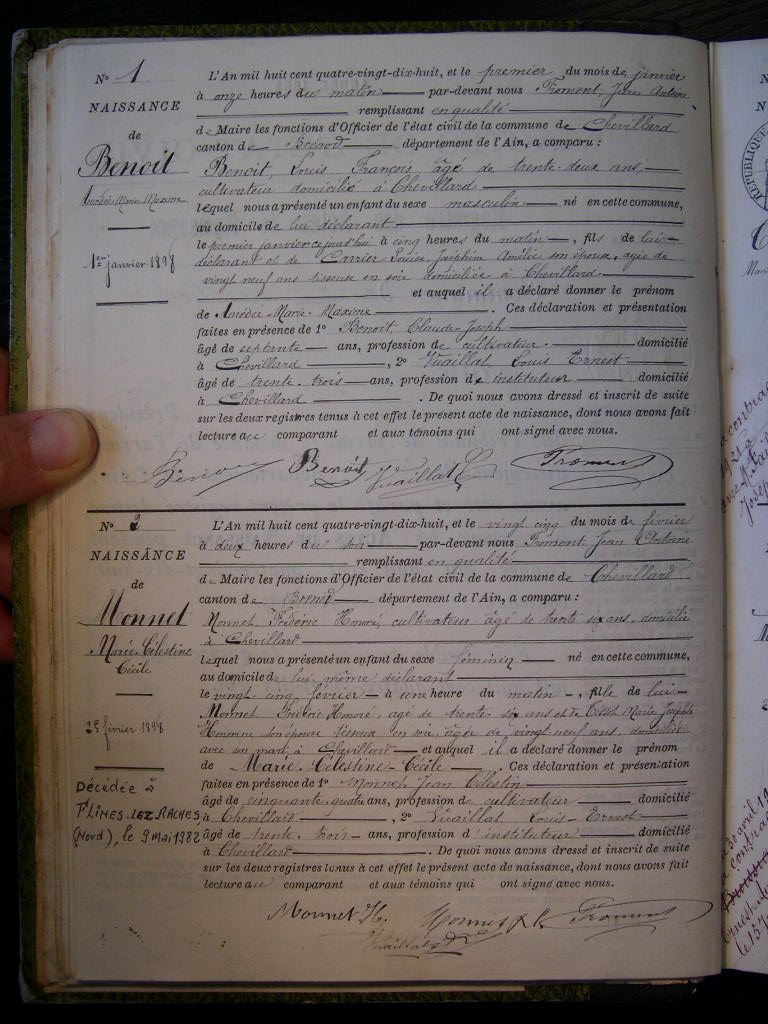 N° 1
NAISSANCE
de
Benoit
Amédée Marie Maxime
1er janvier 1898
L'An mil huit cent quatre-vingt-dix-huit, et le premier du mois de janvier
à onze heures du matin par-devant nous Froment, Jean Antoine
remplissant en qualité
de Maire les fonctions d'Officier de l'état civil de la commune de Chevillard
canton de Brénod département de l'Ain, a comparu :
Benoit, Louis François, âgé de trente-deux ans,
cultivateur domicilié à Chevillard
lequel nous a présenté un enfant du sexe masculin né en cette commune,
au domicile de lui déclarant
le premier janvier cejourd'hui à cinq heures du matin, fils de lui
déclarant et de Carrier Louise Joséphine Amélie son épouse, âgée de
vingt neuf ans tisseuse en soie domiciliée à Chevillard
et auquel il a déclaré donner le prénom
de Amédée-Marie-Maxime. Ces déclaration et présentation
faites en présence de 1° Benoit Claude-Joseph
âgé de septante ans, profession de cultivateur domicilié
à Chevillard, 2° Vuaillat Louis Ernest
âgé de trente-trois ans, profession de instituteur domicilié
à Chevillard. De quoi nous avons dressé et inscrit de suite
sur les deux registres tenus à cet effet le présent acte de naissance, dont nous avons fait
lecture au comparant et aux témoins qui ont signé avec nous.
Benoit Benoit Vuaillat Froment
N° 2
NAISSANCE
de
Monnet
Marie-Célestine
Cécile
25 février 1898
Décédée à
FLINES-LEZ-RACHES
(Nord), le 9 mai 1982
L'An mil huit cent quatre-vingt-dix-huit, et le vingt cinq du mois de février
à deux heures du soir par-devant nous Froment Jean Antoine
remplissant en qualité
de Maire les fonctions d'Officier de l'état civil de la commune de Chevillard
canton de Brénod département de l'Ain, a comparu :
Monnet, Frédéric Honoré, cultivateur âgé de trente six ans, domicilié
à Chevillard
lequel nous a présenté un enfant du sexe féminin né en cette commune,
au domicile de lui même déclarant
le vingt-cinq février à une heure du matin, fille de lui
Monnet Frédéric Honoré, agé de trente six ans et de Marie Josèphte
Honorine son épouse tisseuse en soie, âgée de vingt neuf ans, domiciliée
avec son mari à Chevillard et auquel il a déclaré donner le prénom
de Marie-Célestine-Cécile. Ces déclaration et présentation
faites en présence de 1° Monnet, Jean Célestin
âgé de cinquante-quatre ans, profession de cultivateur domicilié
à Chevillard, 2° Vuaillat, Louis-Ernest
âgé de trente-trois ans, profession d'instituteur domicilié
à Chevillard. De quoi nous avons dressé et inscrit de suite
sur les deux registres tenus à cet effet le présent acte de naissance, dont nous avons fait
lecture au comparant et aux témoins qui ont signé avec nous.
Monnet H. Froment
Vuaillat